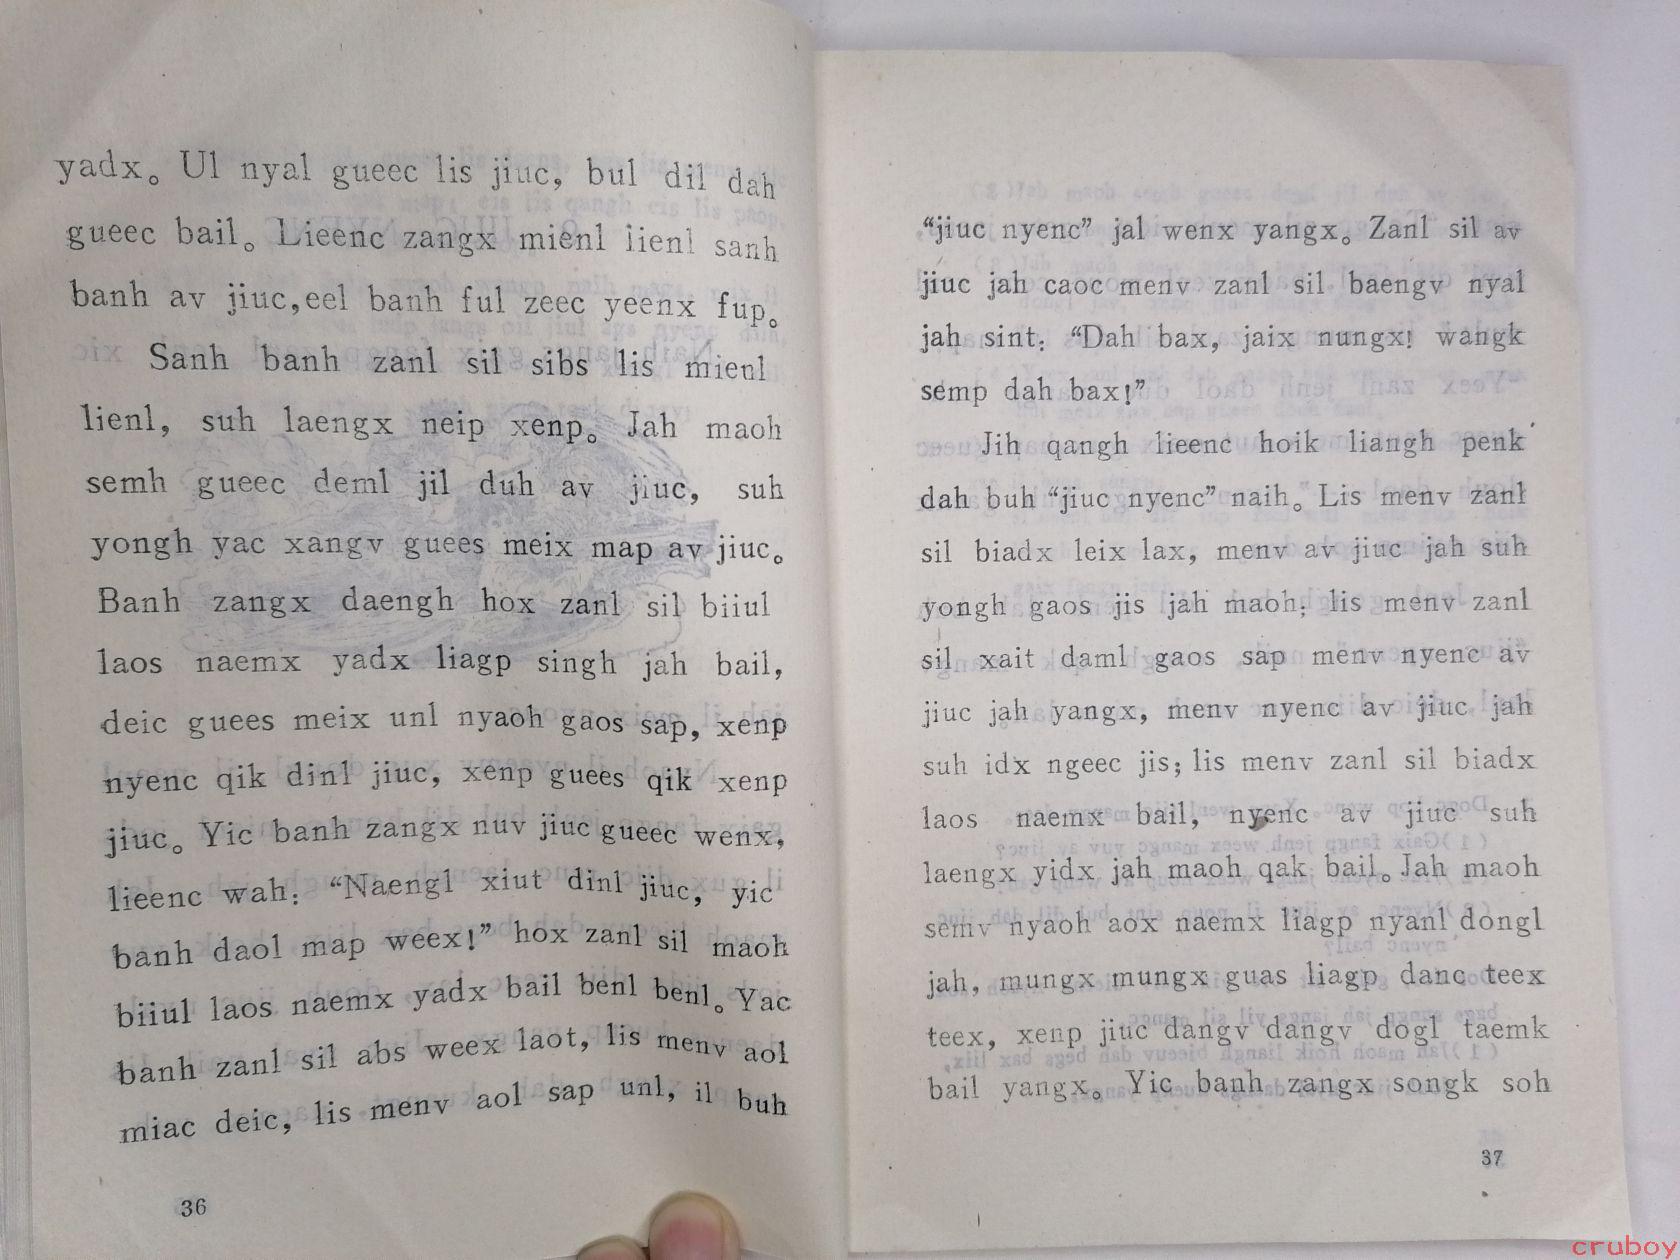 yadx。 Ul nyal gueec lis jiuc, bul dil dah
gueec bail。 Lieenc zangx mienl lienl sanh
banh av jiuc,eel banh ful zeec yeenx fup。
Sanh banh zanl sil sibs lis mienl
lienl, suh laengx neip xenp。 Jah maoh
semh gueec deml jil duh av jiuc, suh
yongh yac xangv guees meix map av jiuc。
Banh zangx daengh hox zanl sil biiul
laos naemx yadx liagp singh jah bail,
deic guees meix unl nyaoh gaos sap, xenp
nyenc qik dinl jiuc, xenp guees qik xenp
jiuc。 Yic banh zangx nuv jiuc gueec wenx,
lieenc wah: “Naengl xiut dinl jiuc, yic
banh daol map weex!” hox zanl sil maoh
biiul laos naemx yadx bail benl benl。 Yac
banh zanl sil abs weex laot, lis menv aol
miac deic, lis menv aol sap unl, il buh
36
“jiuc nyenc” jal wenx yangx。 Zanl sil av
jiuc jah caoc menv zanl sil baengv nyal
jah sint: “Dah bax, jaix nungx! wangk
semp dah bax!”
Jih qangh lieenc hoik liangh penk
dah buh “jiuc nyenc” naih。 Lis menv zanl
sil biadx leix lax, menv av jiuc jah suh
yongh gaos jis jah maoh; lis menv zanl
sil xait daml gaos sap menv nyenc av
jiuc jah yangx, menv nyenc av jiuc jah
suh idx ngeec jis; lis menv zanl sil biadx
laos naemx bail, nyenc av jiuc suh
laengx yidx jah maoh qak bail。 Jah maoh
semv nyaoh aox naemx liagp nyanl dongl
jah, mungx mungx guas liagp danc teex
teex, xenp jiuc dangv dangv dogl taemk
bail yangx。 Yic banh zangx songk soh
37
cruboy